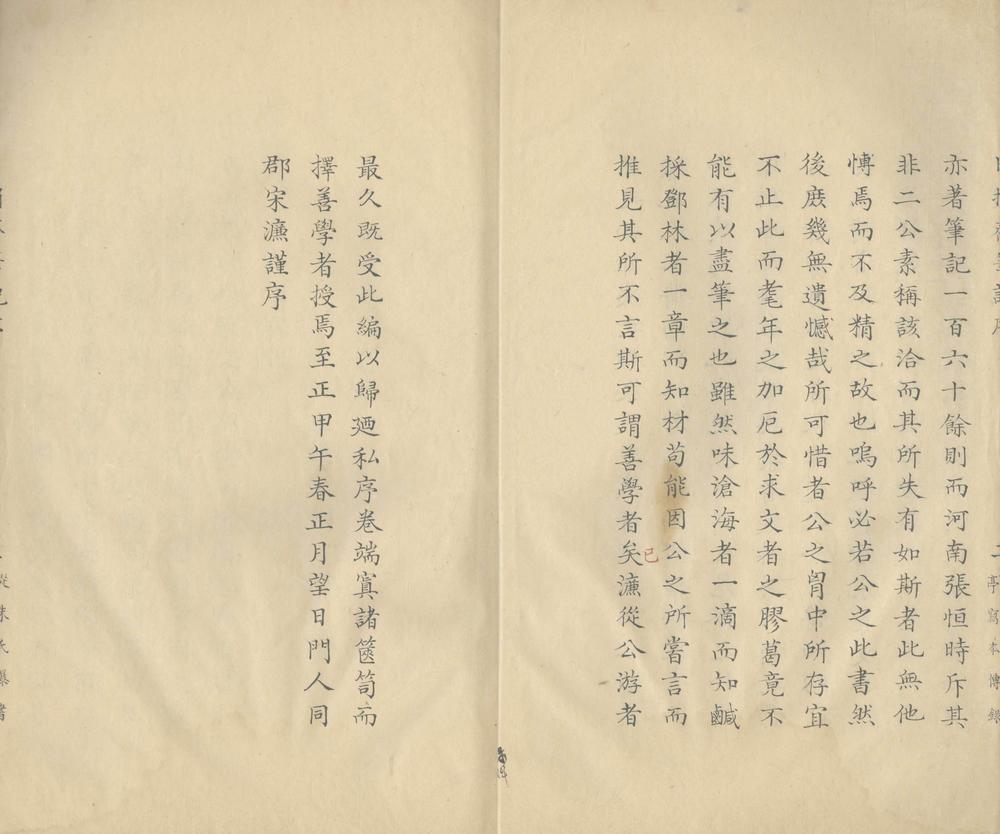 亦著筆記一百六十餘則而河南張恒時斥其
非二公素稱該洽而其所失有如斯者此無他
慱焉而不及精之故也嗚呼必若公之此書然
後庻幾無遺憾哉所可惜者公之胷中所存宜
不止此而耄年之加厄於求文者之膠葛竟不
能有以盡筆之也雖然味滄海者一滴而知鹹
採鄧林者一章而知材苟能因公之所甞言而
已
推見其所不言斯可謂善學者矣濂從公游者
最久既受此編以歸廼私序卷端寘諸篋笥而
擇善學者授焉至正甲午春正月望日門人同
郡宋濂謹序